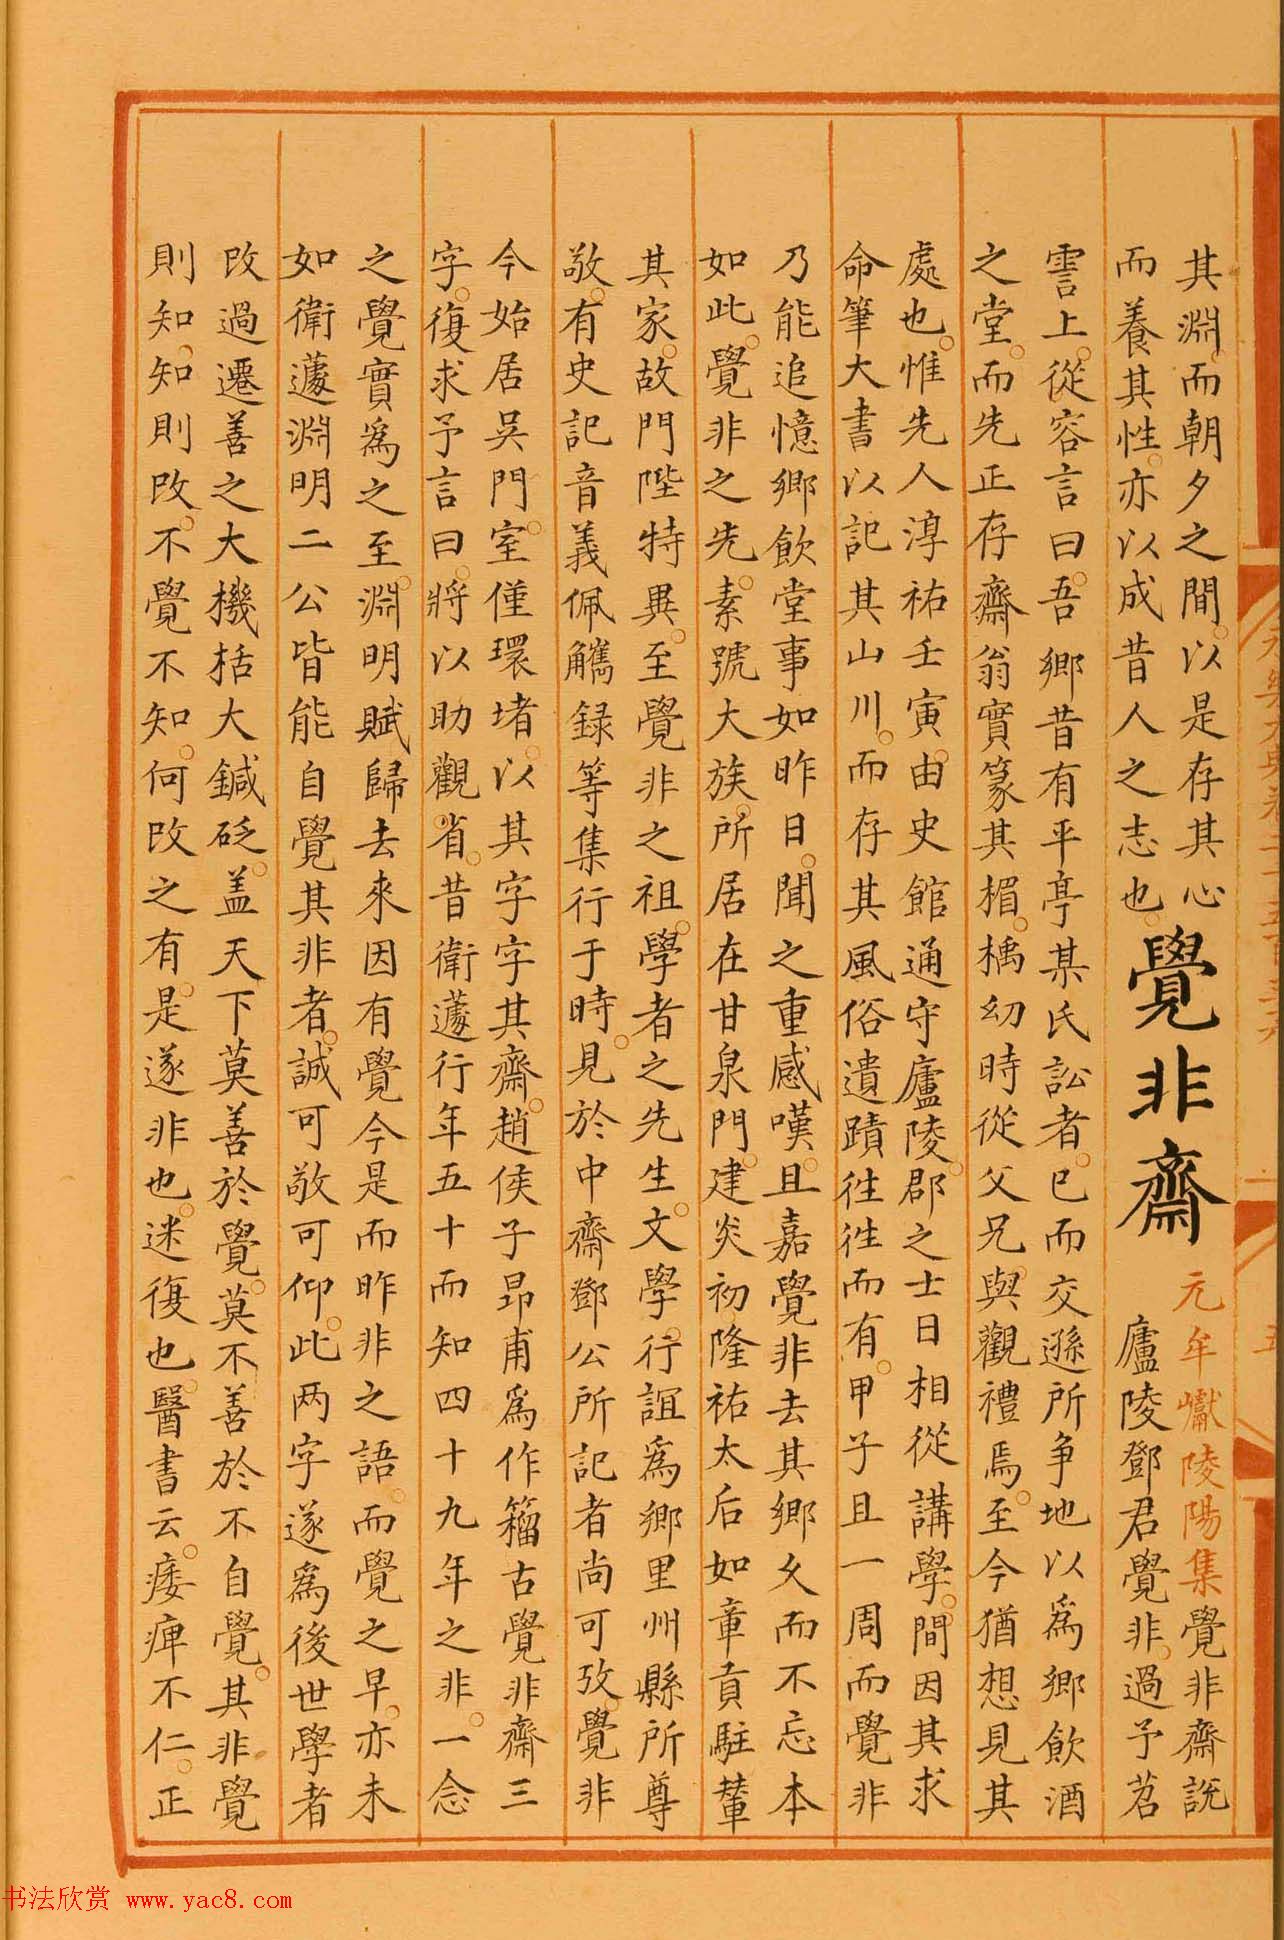 其淵而朝夕之間以是存其心
而養其性亦以成昔人之志也
覺非齋
元牟巘陵陽集覺非齋說
廬陵鄧君覺非過予苕
霅上從容言曰吾鄉昔有平亭某氏訟者已而交遜所争地以爲鄉飲酒
之堂而先正存齋翁實篆其楣楀幼時從父兄與觀禮焉至今猶想見其
處也惟先人淳祐壬寅由史館通守廬陵郡之士日相從講學間因其求
命筆大書以記其山川而存其風俗遺蹟徃徃而有甲子且一周而覺非
乃能追憶鄉飲堂事如昨日聞之重感嘆且嘉覺非去其鄉久而不忘本
如此覺非之先素號大族所居在甘泉門建炎初隆祐太后如章貢駐輦
其家故門陛特異至覺非之祖學者之先生文學行誼爲鄉里州縣所尊
敬有史記音義佩觿録等集行于時見於中齋鄧公所記者尚可攷覺非
今始居吴門室僅環堵以其字字其齋趙侯子昂甫爲作籀古覺非齋三
字復求予言曰將以助觀省昔衛蘧行年五十而知四十九年之非一念
之覺實爲之至淵明賦歸去來因有覺今是而昨非之語而覺之早亦未
如衛蘧淵明二公皆能自覺其非者誠可敬可仰此两字遂爲後世學者
改過遷善之大機括大鍼砭盖天下莫善於覺莫不善於不自覺其非覺
則知知則改不覺不知何改之有是遂非也迷復也醫書云痿痺不仁正
书法欣赏 www.yac8.com